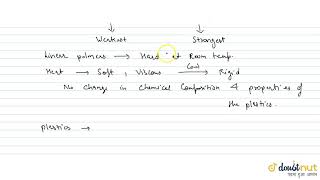 Weakest Strongest
Linear polymers → Hard at Room temp.
Heat → Soft, Viscous Cool → Rigid
No change in Chemical Composition & properties of
the plastics.
plastics →
doubtnut